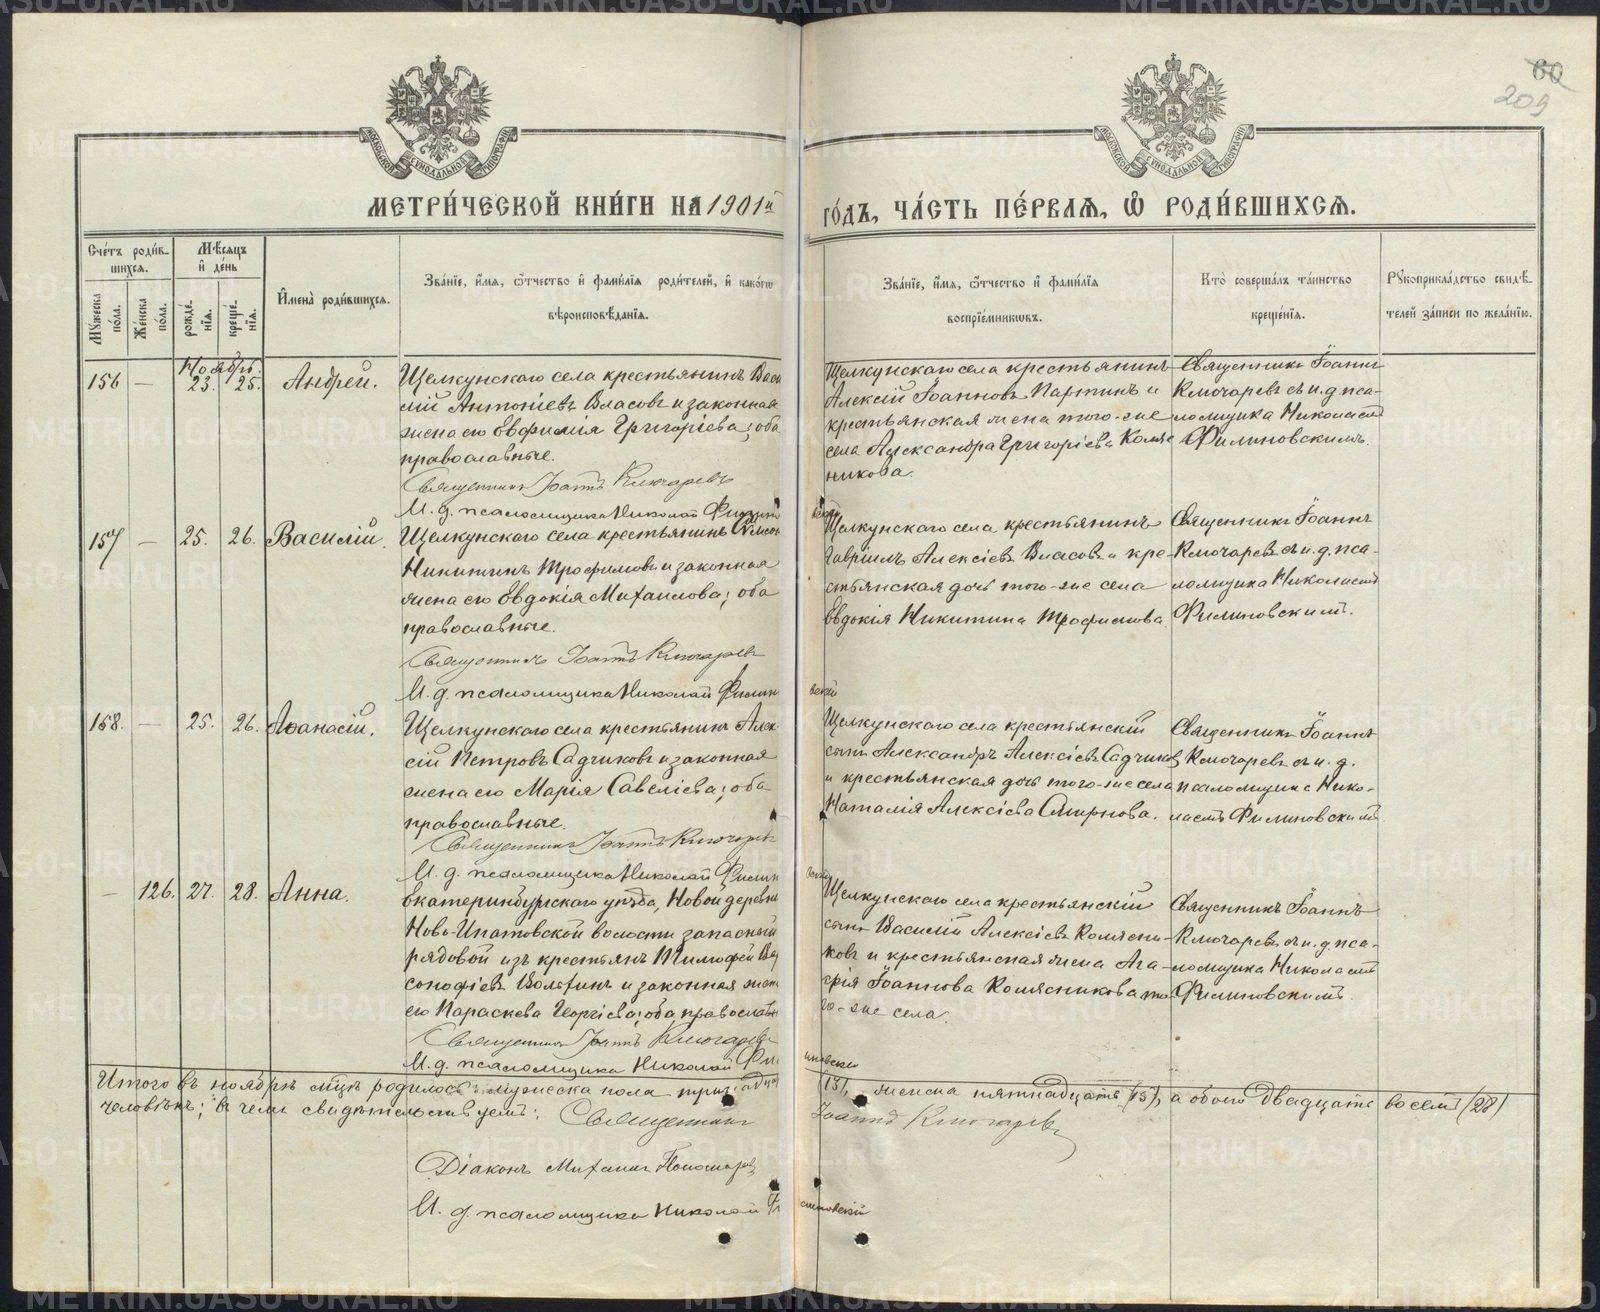 60
209
МЕТРИ́ЧЕСКОЙ КНИ́ГИ НА 1901й ГО́ДЪ, ЧА́СТЬ ПЕ́РВАѦ, Ѽ РОДИ́ВШИХСѦ.
Сче́тъ роди́в-
шихся.
Мѣ́сяцъ
и҆ де́нь
Мꙋ́жеска
по́ла.
Же́нска
по́ла.
рожде́-
нїѧ.
креще́-
нїѧ.
И҆мена̀ роди́вшихсѧ.
Зва́нїе, и҆́мѧ, ѻ҆́тчество и҆ фами́лїѧ роди́телей, и҆ како́гѡ
вѣроисповѣ́данїѧ.
Зва́нїе, и҆́мѧ, ѻ҆́тчество и҆ фами́лїѧ
воспрїе́мникѡвъ.
Кто̀ соверша́лъ та́инство
креще́нїѧ.
Рꙋкоприкла́дство свидѣ́-
телей за́писи по жела́нїю.
Ноябрь.
156 — 23. 25. Андрей.
Щелкунскаго села крестьянинъ Васи
лій Антоніевъ Власовъ и законная
жена его Евфимія Григоріева; оба
православные.
Священникъ Іоаннъ Ключаревъ
И. д. псаломщика Николай Филиновскій
Щелкунскаго села крестьянинъ
Алексій Іоанновъ Партинъ и
крестьянская жена того-же
села Александра Григоріева Коляс
никова.
Священникъ Іоаннъ
Ключаревъ съ и. д. пса-
ломщика Николаемъ
Филиновскимъ.
157 — 25. 26. Василій.
Щелкунскаго села крестьянинъ
Никитинъ Трофимовъ и законная
жена его Евдокія Михаилова; оба
православные.
Священникъ Іоаннъ Ключаревъ
И. д. псаломщика Николай Филиновскій
Щелкунскаго села крестьянинъ
Гавріилъ Алексіевъ Власовъ и кре-
стьянская дочь того-же села
Евдокія Никитина Трофимова
Священникъ Іоаннъ
Ключаревъ съ и. д. пса-
ломщика Николаемъ
Филиновскимъ.
158. — 25. 26. Аѳанасій.
Щелкунскаго села крестьянинъ Алек
сій Петровъ Садчиковъ и законная
жена его Марія Савеліева; оба
православные.
Священникъ Іоаннъ Ключаревъ
И. д. псаломщика Николай Филиновскій
Щелкунскаго села крестьянскій
сынъ Александръ Алексіевъ Садчиковъ
и крестьянская дочь того-же села
Наталія Алексіева Смирнова.
Священникъ Іоаннъ
Ключаревъ съ и. д.
псаломщика Нико-
лаемъ Филиновскимъ
— 126. 27. 28. Анна.
Екатеринбургскаго уѣзда, Новой деревни
Ново-Ипатовской волости запасный
рядовой изъ крестьянъ Тимофей Вар
сонофіевъ и законная жена
его Параскева Георгіева; оба православны
Священникъ Іоаннъ Ключаревъ
И. д. псаломщика Николай Филиновскій
Щелкунскаго села крестьянскій
сынъ Василій Алексіевъ Колясни-
ковъ и крестьянская жена Ага-
фія Іоаннова Колясникова то-
го-же села.
Священникъ Іоаннъ
Ключаревъ съ и. д. пса-
ломщика Николаемъ
Филиновскимъ.
Итого въ ноябрѣ мѣцѣ родилось: мужеска пола тринадцать (13), женска пятнадцать (15), а обоего двадцать восемь (28)
человѣкъ; въ чемъ свидѣтельствуемъ: Священникъ Іоаннъ Ключаревъ
Діаконъ Михаилъ Пономаревъ
И. д. псаломщика Николай Филиновскій
METRIKI.GASU-URAL.RU